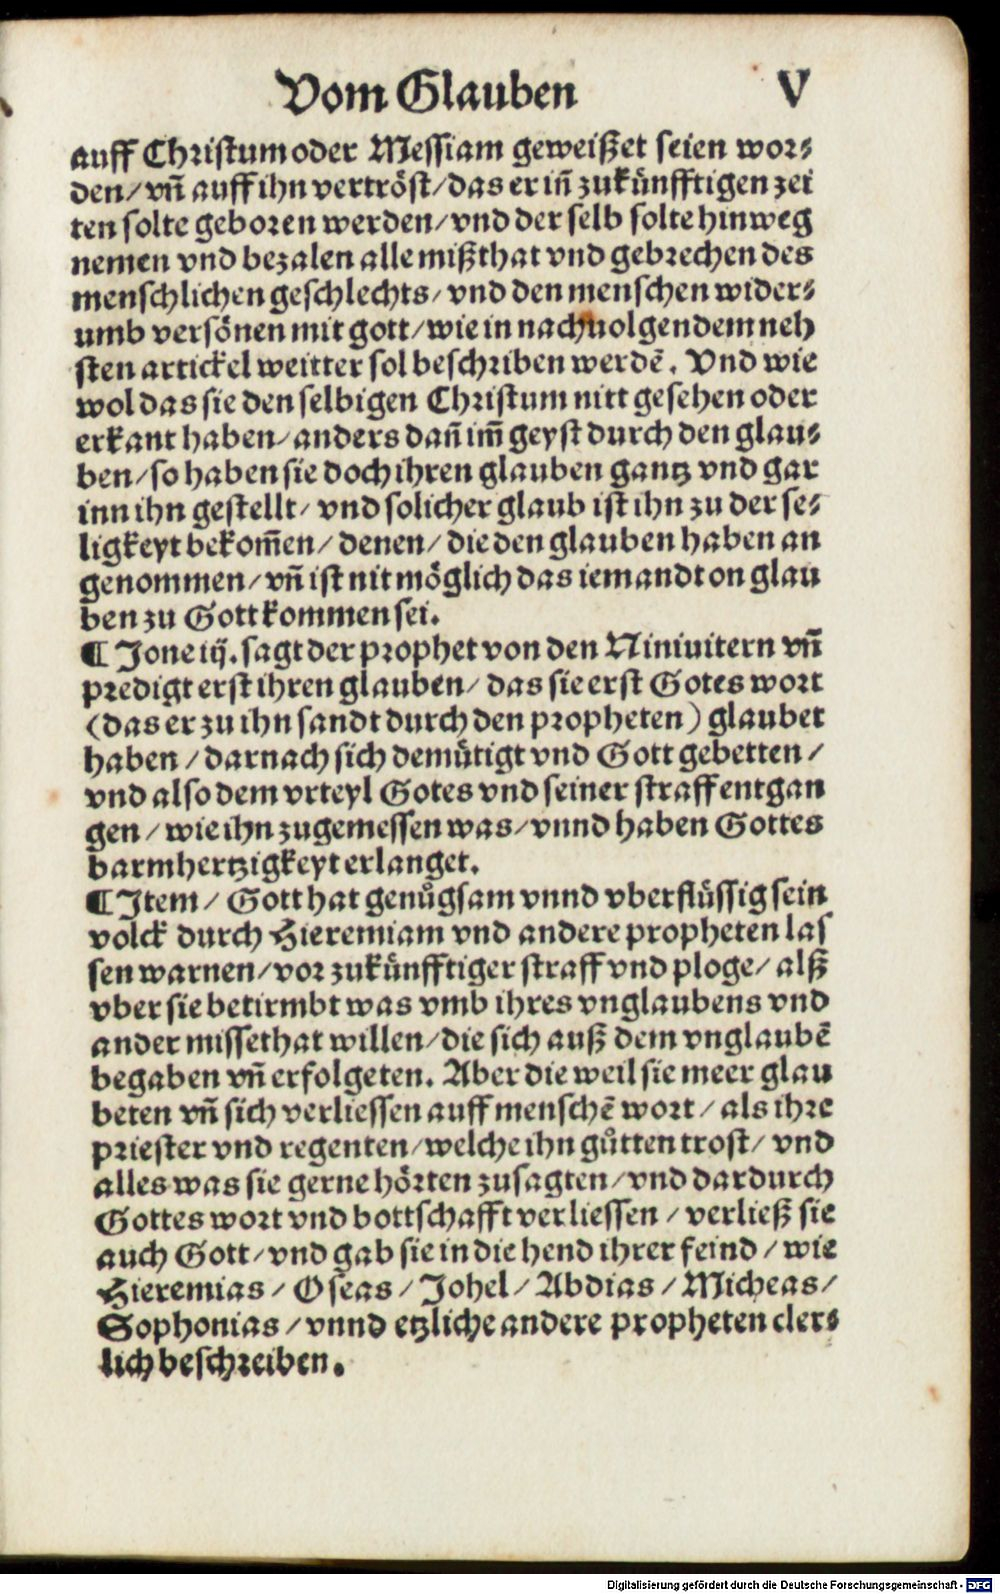 Vom Glauben V
auff Christum oder Messiam geweißet seien wor⸗
den/ vñ auff ihn vertröst/ das er iñ zukünfftigen zei
ten solte geboren werden/ vnd der selb solte hinweg
nemen vnd bezalen alle mißthat vnd gebrechen des
menschlichen geschlechts/ vnd den menschen wider⸗
umb versönen mit gott/ wie in nachuolgendem neh
sten artickel weitter sol beschriben werdē. Vnd wie
wol das sie den selbigen Christum nitt gesehen oder
erkant haben/ anders dañ im̃ geyst durch den glau⸗
ben/ so haben sie doch ihren glauben gantz vnd gar
inn ihn gestellt/ vnd solicher glaub ist ihn zu der se⸗
ligkeyt bekom̃en/ denen/ die den glauben haben an
genommen/ vñ ist nit möglich das iemandt on glau
ben zu Gott kommen sei.
¶ Jone iij. sagt der prophet von den Niniuitern vñ
predigt erst ihren glauben/ das sie erst Gotes wort
(das er zu ihn sandt durch den propheten) glaubet
haben/ darnach sich demütigt vnd Gott gebetten/
vnd also dem vrteyl Gotes vnd seiner straff entgan
gen/ wie ihn zugemessen was/ vnnd haben Gottes
barmhertzigkeyt erlanget.
¶ Item/ Gott hat genůgsam vnnd vberflüssig sein
volck durch Hieremiam vnd andere propheten las
sen warnen/ vor zukünfftiger straff vnd ploge/ alß
vber sie betirmbt was vmb ihres vnglaubens vnd
ander missethat willen/ die sich auß dem vnglaubē
begaben vñ erfolgeten. Aber die weil sie meer glau
beten vñ sich verliessen auff menschē wort/ als ihre
priester vnd regenten/ welche ihn gůtten trost/ vnd
alles was sie gerne hörten zusagten/ vnd dardurch
Gottes wort vnd bottschafft verliessen/ verließ sie
auch Gott/ vnd gab sie in die hend ihrer feind/ wie
Hieremias/ Oseas/ Johel/ Abdias/ Micheas/
Sophonias/ vnnd etzliche andere propheten cler⸗
lich beschreiben.
Digitalisierung gefördert durch die Deutsche Forschungsgemeinschaft - DFG